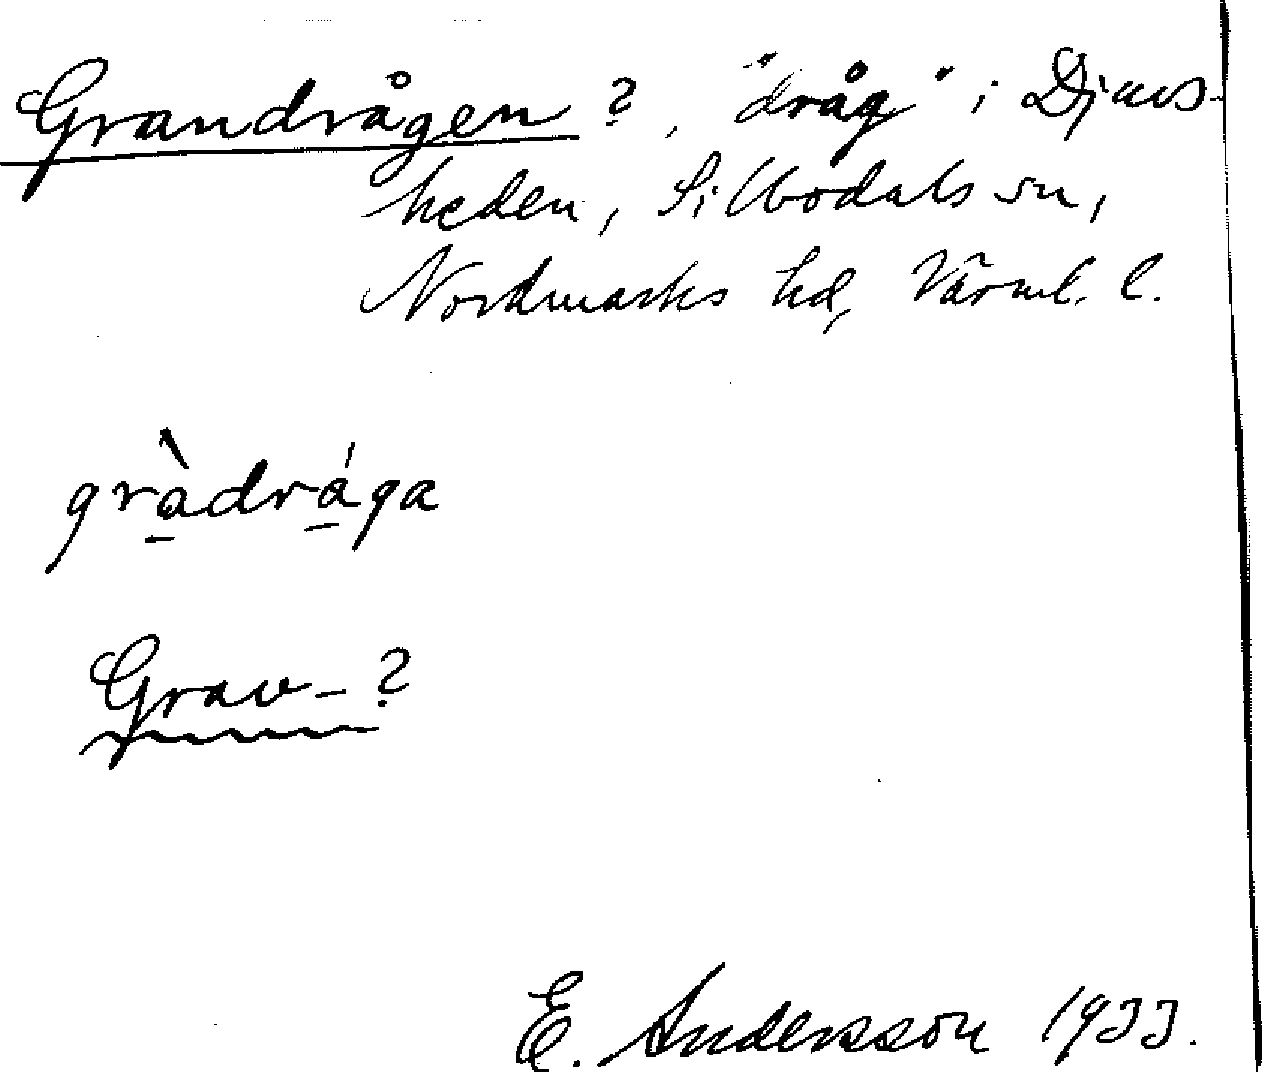 Grandrågen ?, "dråg" i Djus-
heden, Silbodals sn,
Nordmarks hd, Värml. l.
gràdrága
Grav- ?
E. Andersson 1933.